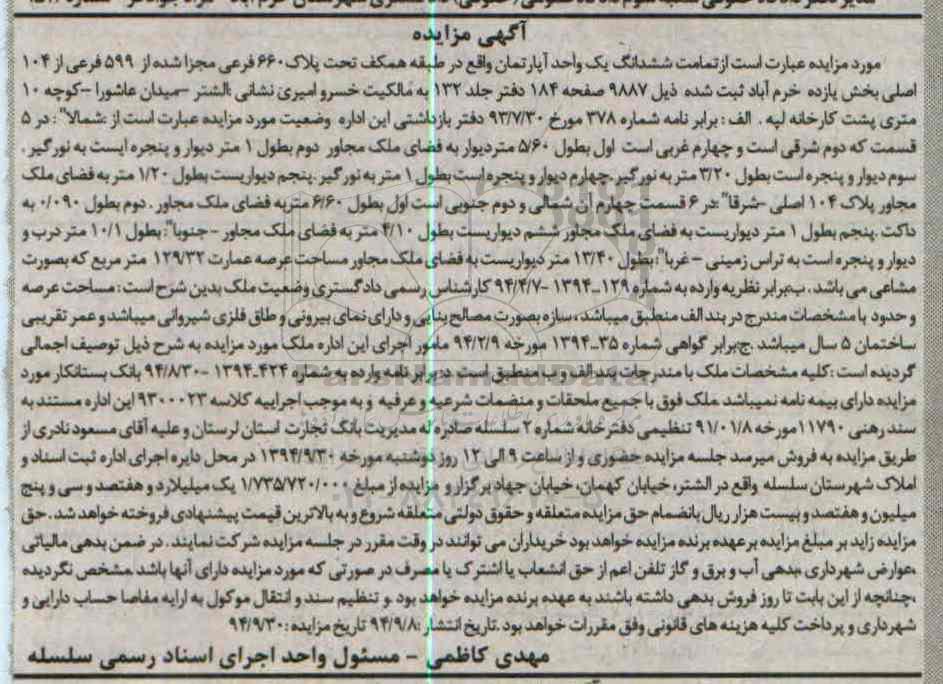 آگهی مزایده
مورد مزایده عبارت است ازتمامت ششدانگ یک واحد آپارتمان واقع در طبقه همکف تحت پلاک ۶۶۰ فرعی مجزا شده از ۵۹۹ فرعی از ۱۰۴
اصلی بخش یازده خرم آباد ثبت شده ذیل ۹۸۸۷ صفحه ۱۸۴ دفتر جلد ۱۳۲ به مالکیت خسرو امیری نشانی :الشتر –میدان عاشورا –کوچه ۱۰
متری پشت کارخانه لپه . الف : برابر نامه شماره ۳۷۸ مورخ ۹۳/۷/۳۰ دفتر بازداشتی این اداره وضعیت مورد مزایده عبارت است از :شمالا" : در ۵
قسمت که دوم شرقی است و چهارم غربی است اول بطول ۵/۶۰ متردیوار به فضای ملک مجاور دوم بطول ۱ متر دیوار و پنجره ایست به نورگیر .
سوم دیوار و پنجره است بطول ۳/۲۰ متر به نورگیر .چهارم دیوار و پنجره است بطول ۱ متر به نور گیر .پنجم دیواریست بطول ۱/۲۰ متر به فضای ملک
مجاور پلاک ۱۰۴ اصلی –شرقا" :در ۶ قسمت چهارم آن شمالی و دوم جنوبی است اول بطول ۶/۶۰ متربه فضای ملک مجاور . دوم بطول ۰/۰۹۰ به
داکت .پنجم بطول ۱ متر دیواریست به فضای ملک مجاور ششم دیواریست بطول ۴/۱۰ متر به فضای ملک مجاور – جنوبا": بطول ۱۰/۱ متر درب و
دیوار و پنجره است به تراس زمینی – غربا":بطول ۱۳/۴۰ متر دیواریست به فضای ملک مجاور مساحت عرصه عمارت ۱۲۹/۳۲ متر مربع که بصورت
مشاعی می باشد . ب:برابر نظریه وارده به شماره ۱۲۹–۱۳۹۴ –۹۴/۴/۷ کارشناس رسمی دادگستری وضعیت ملک بدین شرح است : مساحت عرصه
و حدود با مشخصات مندرج در بند الف منطبق میباشد ، سازه بصورت مصالح بنایی و دارای نمای بیرونی و طاق فلزی شیروانی میباشد و عمر تقریبی
ساختمان ۵ سال میباشد .ج:برابر گواهی شماره ۳۵–۱۳۹۴ مورخه ۹۴/۲/۹ مامور اجرای این اداره ملک مورد مزایده به شرح ذیل توصیف اجمالی
گردیده است :کلیه مشخصات ملک با مندرجات بند الف و ب منطبق است .د:برابر نامه وارده به شماره ۴۲۴–۱۳۹۴ –۹۴/۸/۳۰ بانک بستانکار مورد
مزایده دارای بیمه نامه نمیباشد .ملک فوق با جمیع ملحقات و منضمات شرعیه و عرفیه و به موجب اجراییه کلاسه ۹۳۰۰۰۲۳ این اداره مستند به
سند رهنی ۱۱۷۹۰مورخه ۹۱/۰۱/۸ تنظیمی دفترخانه شماره ۲ سلسله صادره له مدیریت بانک تجارت استان لرستان و علیه آقای مسعود نادری از
طریق مزایده به فروش میرسد جلسه مزایده حضوری و از ساعت ۹ الی ۱۲ روز دوشنبه مورخه ۱۳۹۴/۹/۳۰ در محل دایره اجرای اداره ثبت اسناد و
املاک شهرستان سلسله واقع در الشتر، خیابان کهمان، خیابان جهاد برگزار و مزایده از مبلغ ۱/۷۳۵/۷۲۰/۰۰۰ یک میلیلارد و هفتصد و سی و پنج
میلیون و هفتصد و بیست هزار ریال بانضمام حق مزایده متعلقه و حقوق دولتی متعلقه شروع و به بالاترین قیمت پیشنهادی فروخته خواهد شد . حق
مزایده زاید بر مبلغ مزایده بر عهده برنده مزایده خواهد بود خریداران می توانند در وقت مقرر در جلسه مزایده شرکت نمایند . در ضمن بدهی مالیاتی
،عوارض شهرداری ،بدهی آب و برق و گاز تلفن اعم از حق انشعاب یا اشترک یا مصرف در صورتی که مورد مزایده دارای آنها باشد .مشخص نگردیده
،چنانچه از این بابت تا روز فروش بدهی داشته باشند به عهده برنده مزایده خواهد بود .و تنظیم سند و انتقال موکول به ارایه مفاصا حساب دارایی و
شهرداری و پرداخت کلیه هزینه های قانونی وفق مقررات خواهد بود .تاریخ انتشار :۹۴/۹/۸ تاریخ مزایده : ۹۴/۹/۳۰
مهدی کاظمی – مسئول واحد اجرای اسناد رسمی سلسله
ParsNamadData